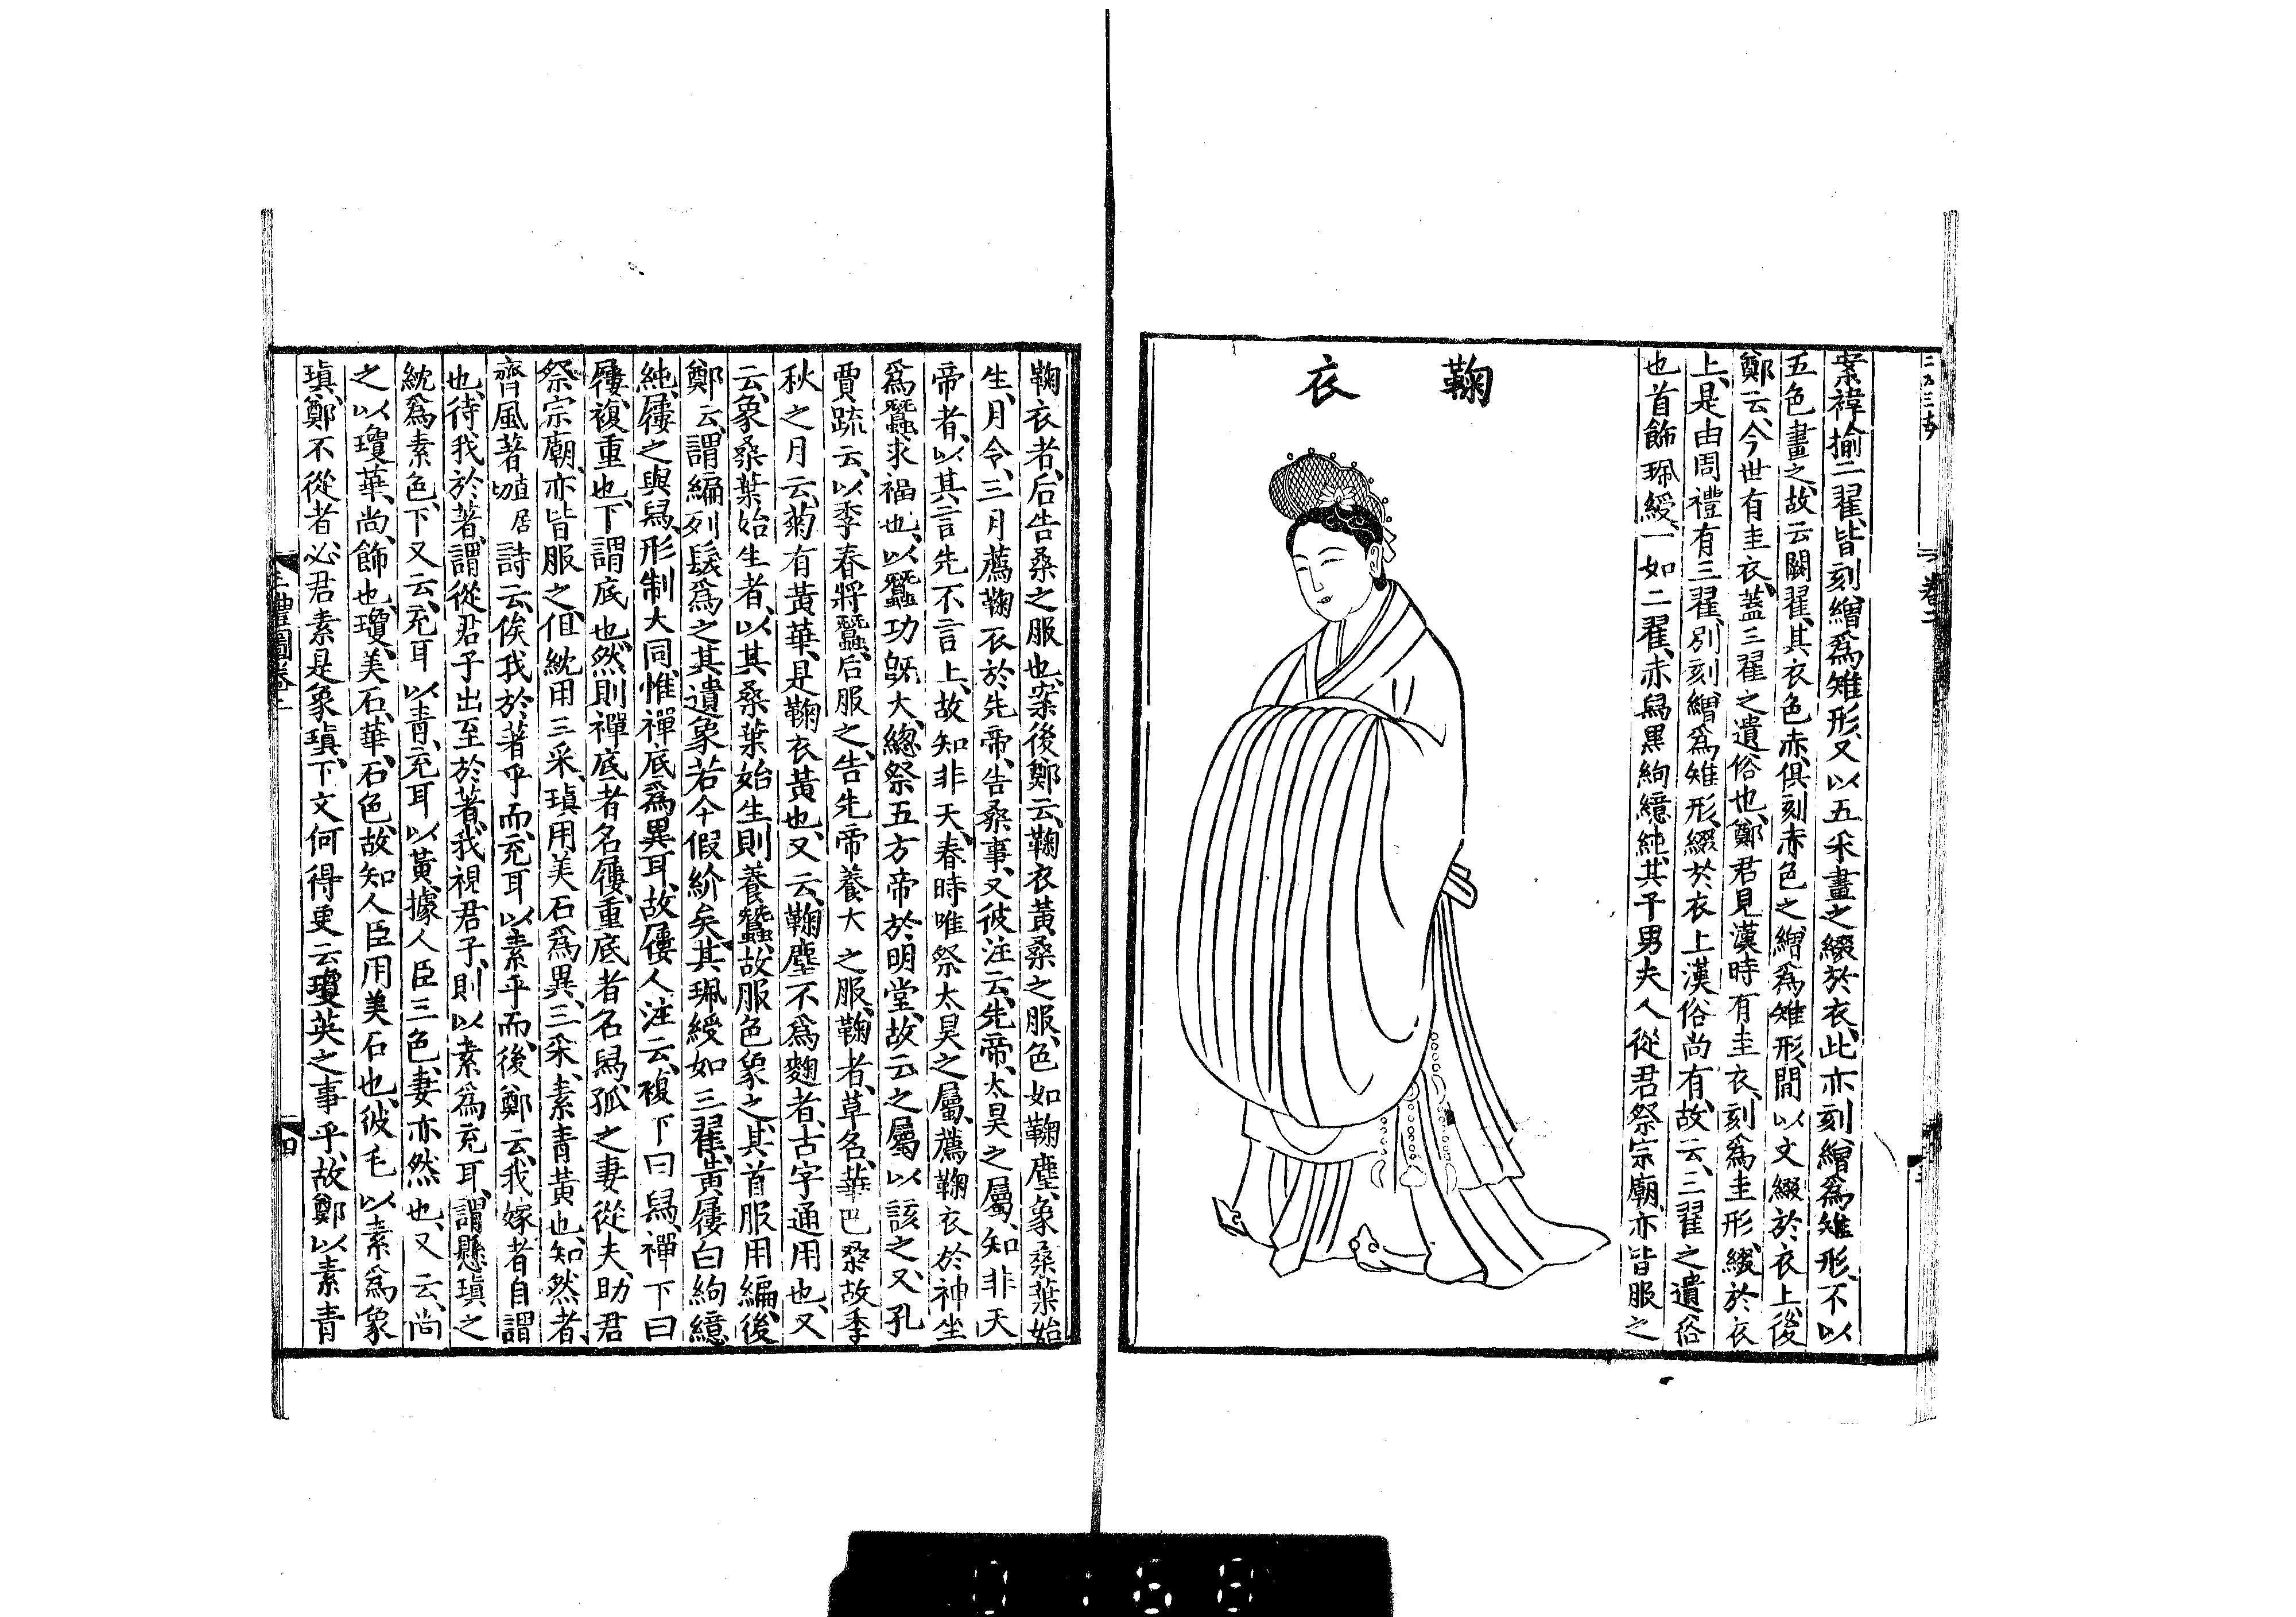 案褘揄二翟皆刻繒爲雉形又以五采畫之綴於衣此亦刻繒爲雉形不以
五色畫之故云闕翟其衣色赤俱刻赤色之繒爲雉形閒以文綴於衣上後
鄭云今世有圭衣蓋三翟之遺俗也鄭君見漢時有圭衣刻爲圭形綴於衣
上是由周禮有三翟別刻繒爲雉形綴於衣上漢俗尚有故云三翟之遺俗
也首飾珮綬一如二翟赤舄黒絇繶純其子男夫人從君祭宗廟亦皆服之
鞠衣
鞠衣者后告桑之服也案後鄭云鞠衣黃桑之服色如鞠塵象桑葉始
生月令三月薦鞠衣於先帝告桑事又彼注云先帝太昊之屬知非天
帝者以其言先不言上故知非天春時唯祭太昊之屬薦鞠衣於神坐
爲蠶求福也以蠶功旣大總祭五方帝於明堂故云之屬以該之又孔
賈疏云以季春將蠶后服之告先帝養大之服鞠者草名華巴桑故季
秋之月云菊有黃華是鞠衣黃也又云鞠塵不爲麴者古字通用也又
云象桑葉始生者以其桑葉始生則養蠶故服色象之其首服用編後
鄭云謂編列髮爲之其遺象若今假紒矣其珮綬如三翟黃屨白絇繶
純屨之與舄形制大同惟襌底爲異耳故屨人注云複下曰舄襌下曰
屨複重也下謂底也然則襌底者名屨重底者名舄孤之妻從夫助君
祭宗廟亦皆服之但紞用三采瑱用美石爲異三采素青黃也知然者
齊風著直居切詩云俟我於著乎而充耳以素乎而後鄭云我嫁者自謂
也待我於著謂從君子出至於著我視君子則以素爲充耳謂懸瑱之
紞爲素色下又云充耳以青充耳以黃據人臣三色妻亦然也又云尚
之以瓊華尚飾也瓊美石華石色故知人臣用美石也彼毛以素爲象
瑱鄭不從者必君素是象瑱下文何得更云瓊英之事乎故鄭以素青
三禮圖卷二
四
0168